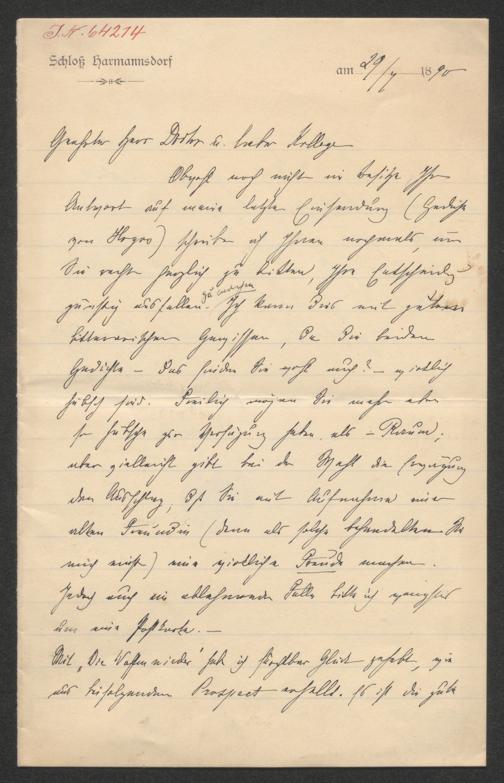 J.N. 64274
Schloß Harmannsdorf
am 29/4 1890
Geehrter Herr Doktor u. lieber Kollege
Obwohl noch nicht im Besitze Ihrer
Antwort auf meine letzte Einsendung (Gedichte
von Hoyos) schreibe ich Ihnen nochmals um
Sie recht herzlich zu bitten, Ihre Entscheidung
günstig ausfallen zu machen. Ich kann dies mit gutem
litterarischen Gewissen, da die beiden
Gedichte – das finden Sie wohl auch? – wirklich
hübsch sind. Freilich mögen Sie mehr eben
so hübsche zur Verfügung haben, als – Raum;
aber vielleicht gibt bei der Wahl die Erwägung
den Ausschlag, daß Sie mit Aufnahme einer
alten Freundin (denn als solche behandelten Sie
mich einst) eine wirkliche Freude machen.
Jedoch auch im ablehnenden Falle bitte ich wenigstens
um eine Postkarte. –
Mit „Die Waffen nieder" hab ich furchtbar Glück gehabt, wie
aus beifolgendem Prospect erhellt. Es ist die gute